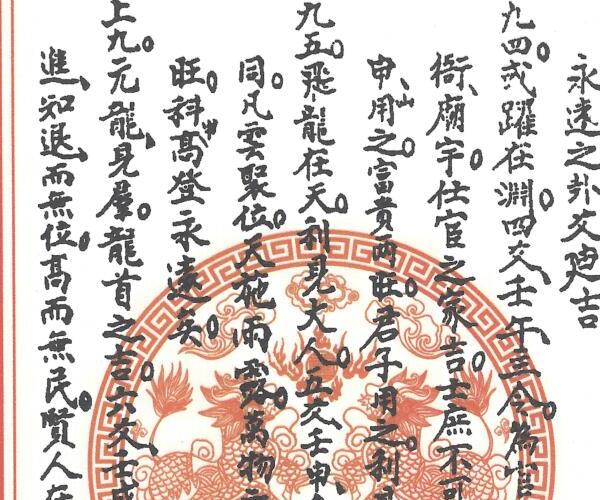 永遠之卦爻逈吉
九四。或躍在淵。四爻、壬午三合為官
衙、廟宇。仕宦之家吉。士庶不可
申、山用之。富貴兩旺。君子用之。利見
九五。飛龍在天。利見大人。五爻壬申、金
同。凡雲聚位。天施雨露。萬物
旺。科甲高登永遠矣。
上九。元龍、見羣。龍首之吉。六爻壬戌
進、知退、而無位。高而無民。賢人在